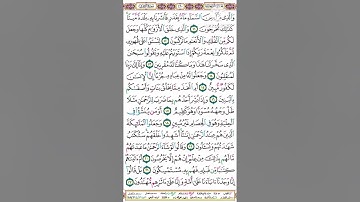 وَالَّذِي نَزَّلَ مِنَ السَّمَاءِ مَاءً بِقَدَرٍ فَأَنشَرْنَا بِهِ بَلْدَةً مَّيْتًا
كَذَلِكَ تُخْرَجُونَ وَالَّذِي خَلَقَ الْأَزْوَاجَ كُلَّهَا وَجَعَلَ
لَكُم مِّنَ الْفُلْكِ وَالْأَنْعَامِ مَا تَرْكَبُونَ لِتَسْتَوُوا عَلَى ظُهُورِهِ
ثُمَّ تَذْكُرُوا نِعْمَةَ رَبِّكُمْ إِذَا اسْتَوَيْتُمْ عَلَيْهِ وَتَقُولُوا سُبْحَانَ
الَّذِي سَخَّرَ لَنَا هَذَا وَمَا كُنَّا لَهُ مُقْرِنِينَ وَإِنَّا إِلَى رَبِّنَا
لَمُنقَلِبُونَ وَجَعَلُوا لَهُ مِنْ عِبَادِهِ جُزْءًا إِنَّ الْإِنسَانَ
لَكَفُورٌ مُّبِينٌ أَمِ اتَّخَذَ مِمَّا يَخْلُقُ بَنَاتٍ وَأَصْفَاكُم
بِالْبَنِينَ وَإِذَا بُشِّرَ أَحَدُهُم بِمَا ضَرَبَ لِلرَّحْمَنِ مَثَلًا
ظَلَّ وَجْهُهُ مُسْوَدًّا وَهُوَ كَظِيمٌ أَوَمَن يَنشَؤُا فِي
الْحِلْيَةِ وَهُوَ فِي الْخِصَامِ غَيْرُ مُبِينٍ وَجَعَلُوا الْمَلَائِكَةَ
الَّذِينَ هُمْ عِندَ الرَّحْمَنِ إِنَاثًا أَشَهِدُوا خَلْقَهُمْ سَتُكْتَبُ
شَهَادَتُهُمْ وَيُسْأَلُونَ وَقَالُوا لَوْ شَاءَ الرَّحْمَنُ مَا عَبَدْنَاهُم
مَّا لَهُم بِذَلِكَ مِنْ عِلْمٍ إِنْ هُمْ إِلَّا يَخْرُصُونَ أَمْ آتَيْنَاهُمْ
كِتَابًا مِّن قَبْلِهِ فَهُم بِهِ مُسْتَمْسِكُونَ بَلْ قَالُوا
إِنَّا وَجَدْنَا آبَاءَنَا عَلَى أُمَّةٍ وَإِنَّا عَلَى آثَارِهِم مُّهْتَدُونَ